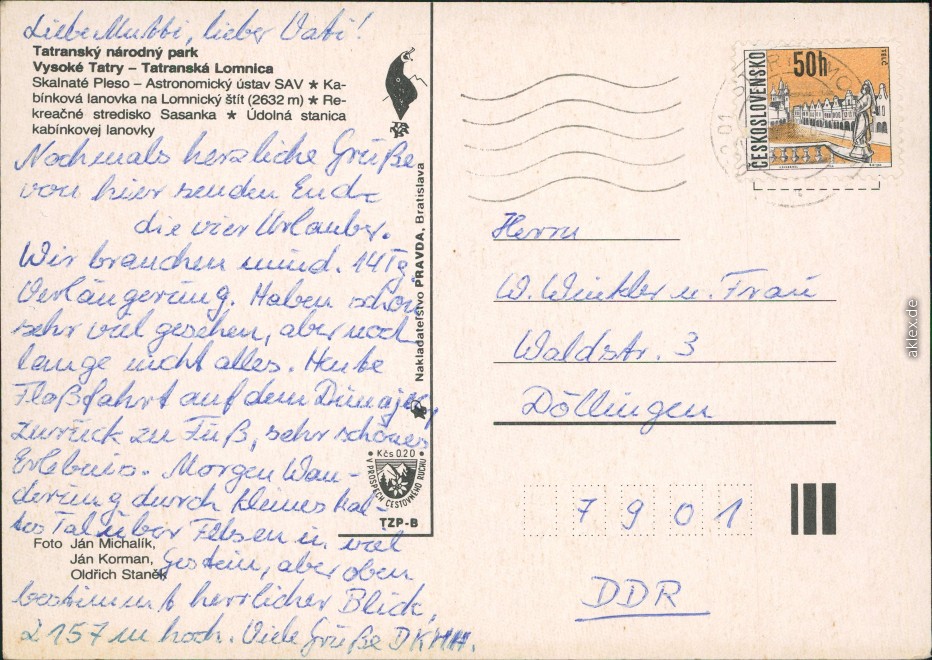 Liebe Mutti, lieber Vati!
Tatranský národný park
Vysoké Tatry – Tatranská Lomnica
Skalnaté Pleso – Astronomický ústav SAV ★ Ka-
bínková lanovka na Lomnický štít (2632 m) ★ Re-
kreačné stredisko Sasanka ★ Údolná stanica
kabínkovej lanovky
Nochmals herzliche Grüße
von hier senden Euch
die vier Urlauber.
Wir brauchen mind. 14 Tg.
Verlängerung. Haben schon
sehr viel gesehen, aber noch
lange nicht alles. Heute
Floßfahrt auf dem Dunajec,
zurück zu Fuß, sehr schönes
Erlebnis. Morgen Wan-
derung durch kleines
Tal über Felsen u. viel
Gestein, aber oben
bestimmt herrlicher Blick,
2157 m hoch. Viele Grüße DKHH.
Foto Ján Michalík,
Ján Korman,
Oldřich Staněk
Nakladateľstvo PRAVDA, Bratislava
Kčs 0.20
V PROSPECH CESTOVNÉHO RUCHU
TZP-B
ČESKOSLOVENSKO
50h
TELČ
Herrn
W. Winkler u. Frau
Waldstr. 3
Döllingen
7901
DDR
aklex.de